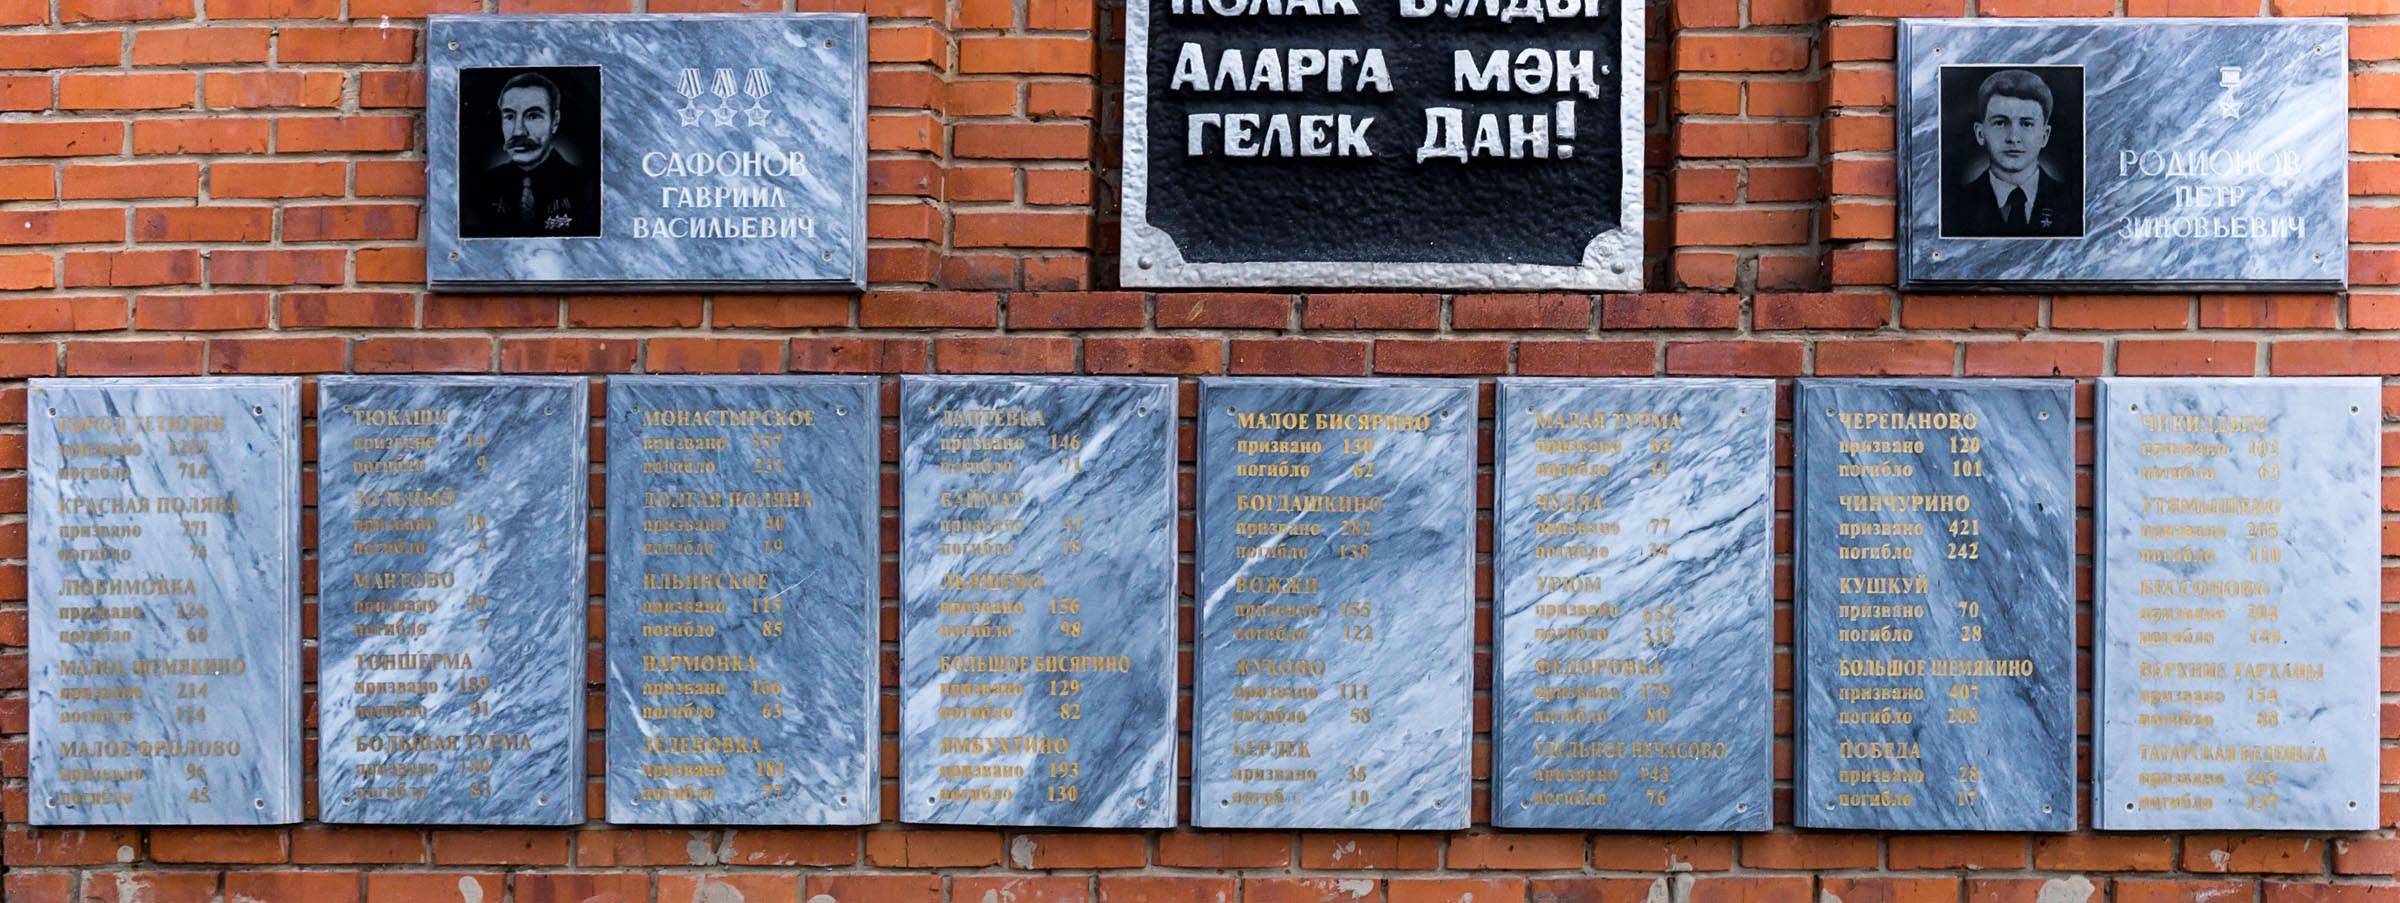 САФОНОВ
ГАВРИИЛ
ВАСИЛЬЕВИЧ
ПОЛАК БУЛДЫ
АЛАРГА МӘҢ-
ГЕЛЕК ДАН!
РОДИОНОВ
ПЕТР
ЗИНОВЬЕВИЧ
ГОРОД ТЕТЮШИ
призвано 1202
погибло 714
КРАСНАЯ ПОЛЯНА
призвано 271
погибло 74
ЛЮБИМОВКА
призвано 126
погибло 66
МАЛОЕ ШЕМЯКИНО
призвано 214
погибло 124
МАЛОЕ ФРОЛОВО
призвано 96
погибло 45
ТЮКАШИ
призвано 14
погибло 9
ЗОЛЬНЫЙ
призвано 10
погибло 4
МАНТОВО
призвано 19
погибло 7
ТОНШЕРМА
призвано 189
погибло 91
БОЛЬШАЯ ТУРМА
призвано 180
погибло 83
МОНАСТЫРСКОЕ
призвано 557
погибло 231
ДОЛГАЯ ПОЛЯНА
призвано 40
погибло 19
ИЛЬИНСКОЕ
призвано 115
погибло 85
НАРМОНКА
призвано 166
погибло 63
ЗЕЛЕНОВКА
призвано 181
погибло 77
ЛАПТЕВКА
призвано 146
погибло 71
БАЙМАТ
призвано
погибло 18
ЛЬЯШЕВО
призвано 156
погибло 98
БОЛЬШОЕ БИСЯРИНО
призвано 129
погибло 82
ЯМБУХТИНО
призвано 193
погибло 130
МАЛОЕ БИСЯРИНО
призвано 130
погибло 62
БОГДАШКИНО
призвано 282
погибло 138
ВОЖЖИ
призвано 155
погибло 122
ЖУКОВО
призвано 111
погибло 58
БЕРЛЕК
призвано 35
погибло 10
МАЛАЯ ТУРМА
призвано 63
погибло 31
ЧУЛЛА
призвано 77
погибло 34
УРЮМ
призвано 652
погибло 333
ФЕДОРОВКА
призвано 179
погибло 80
УДЕЛЬНОЕ НЕЧАСОВО
призвано 143
погибло 76
ЧЕРЕПАНОВО
призвано 120
погибло 101
ЧИНЧУРИНО
призвано 421
погибло 242
КУШКУЙ
призвано 70
погибло 28
БОЛЬШОЕ ШЕМЯКИНО
призвано 407
погибло 208
ПОБЕДА
призвано 28
погибло 17
ЧИКИЛДЫМ
призвано 102
погибло 63
УТЯМЫШЕВО
призвано 205
погибло 110
БЕССОНОВО
призвано 204
погибло 149
ВЕРХНИЕ ТАРХАНЫ
призвано 154
погибло 88
ТАТАРСКАЯ БЕДЕНЬГА
призвано 245
погибло 137